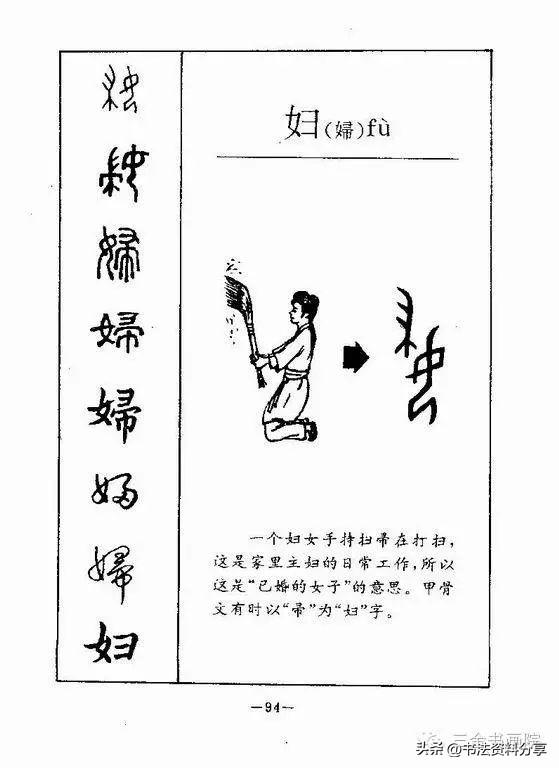 妇(婦)fù
婦
婦
婦
婦
婦
妇
一个妇女手持扫帚在打扫，
这是家里主妇的日常工作，所以
这是“已婚的女子”的意思。甲骨
文有时以“帚”为“妇”字。
—94—
三余书画院
头条@书法资料分享